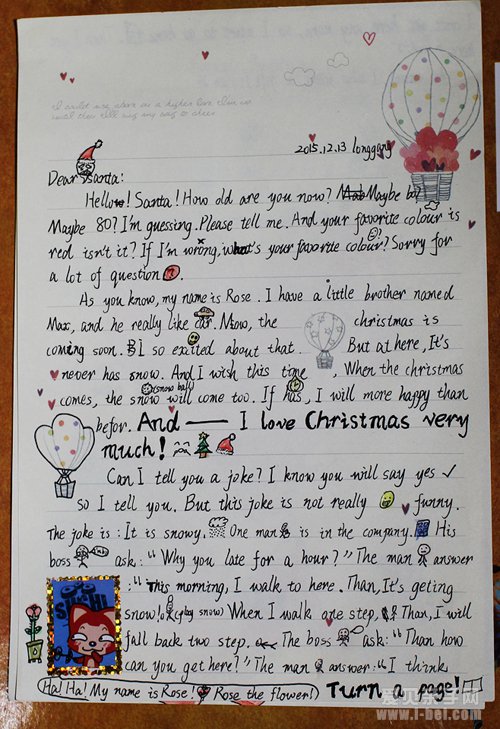 2015.12.13 longgang
Dear Santa:
Hello! Santa! How old are you now? Maybe 60?
Maybe 80? I'm guessing. Please tell me. And your favorite colour is
red isn't it? If I'm wrong, what's your favorite colour? Sorry for
a lot of question.
As you know, my name is Rose. I have a little brother named
Max, and he really like car. Now, the christmas is
coming soon. I so exited about that. But at here, It's
never has snow. And I wish this time, When the christmas
(snow ball)
comes, the snow will come too. If has, I will more happy than
befor. And — I love Christmas very
much!
Can I tell you a joke? I know you will say yes ✓
So I tell you. But this joke is not really funny.
The joke is: It is snowy. One man is in the company. His
boss ask: "Why you late for a hour?" The man answer
: "This morning, I walk to here. Than, It's geting
snow! (big snow) When I walk one step, Than, I will
fall back two step. The boss ask: "Than how
can you get here?" The man answer: "I think
Ha! Ha! My name is Rose! Rose the flower!) Turn a page!
爱贝亲子网
www.i-bei.com